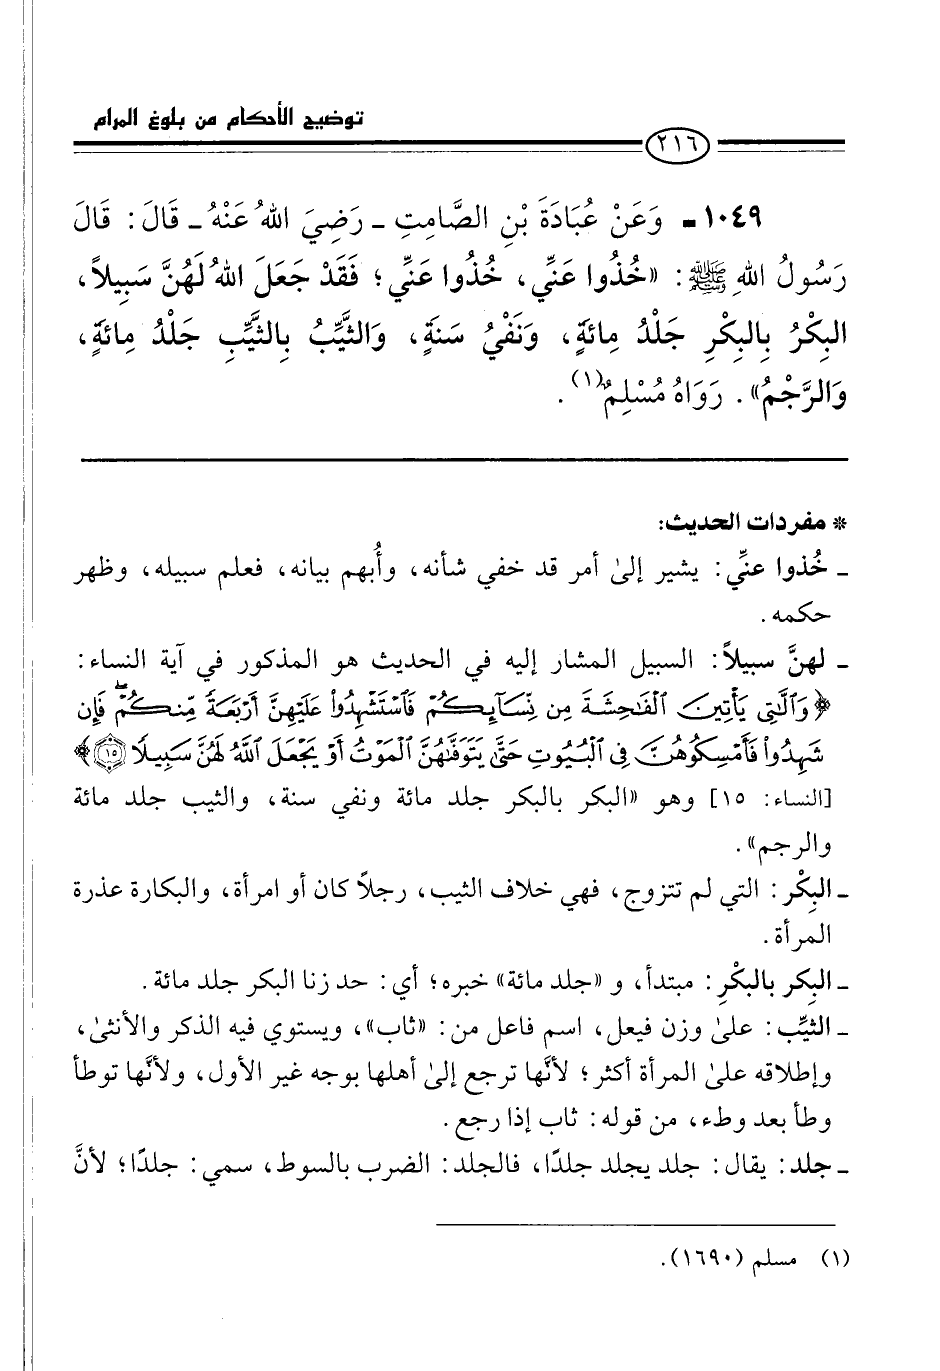 توضيح الأحكام من بلوغ المرام
٢١٦
١٠٤٩ - وَعَنْ عُبَادَةَ بْنِ الصَّامِتِ - رَضِيَ اللهُ عَنْهُ - قَالَ: قَالَ
رَسُولُ اللهِ ﷺ: «خُذُوا عَنِّي، خُذُوا عَنِّي؛ فَقَدْ جَعَلَ اللهُ لَهُنَّ سَبِيلاً،
البِكْرُ بِالبِكْرِ جَلْدُ مِائَةٍ، وَنَفْيُ سَنَةٍ، وَالثَّيِّبُ بِالثَّيِّبِ جَلْدُ مِائَةٍ،
وَالرَّجْمُ». رَوَاهُ مُسْلِمٌ(١).
* مفردات الحديث:
- خُذوا عنِّي: يشير إلىٰ أمر قد خفي شأنه، وأُبهم بيانه، فعلم سبيله، وظهر
حكمه.
- لهنَّ سبيلاً: السبيل المشار إليه في الحديث هو المذكور في آية النساء:
﴿وَٱلَّٰتِى يَأۡتِينَ ٱلۡفَٰحِشَةَ مِن نِّسَآئِكُمۡ فَٱسۡتَشۡهِدُواْ عَلَيۡهِنَّ أَرۡبَعَةً مِّنكُمۡۖ فَإِن
شَهِدُواْ فَأَمۡسِكُوهُنَّ فِى ٱلۡبُيُوتِ حَتَّىٰ يَتَوَفَّىٰهُنَّ ٱلۡمَوۡتُ أَوۡ يَجۡعَلَ ٱللَّهُ لَهُنَّ سَبِيلًا ١٥﴾
[النساء: ١٥] وهو «البكر بالبكر جلد مائة ونفي سنة، والثيب جلد مائة
والرجم».
- البِكْر: التي لم تتزوج، فهي خلاف الثيب، رجلاً كان أو امرأة، والبكارة عذرة
المرأة.
- البِكر بالبكْرِ: مبتدأ، و «جلد مائة» خبره؛ أي: حد زنا البكر جلد مائة.
- الثيِّب: علىٰ وزن فيعل، اسم فاعل من: «ثاب»، ويستوي فيه الذكر والأنثىٰ،
وإطلاقه علىٰ المرأة أكثر؛ لأنَّها ترجع إلىٰ أهلها بوجه غير الأول، ولأنَّها توطأ
وطأ بعد وطء، من قوله: ثاب إذا رجع.
- جلد: يقال: جلد يجلد جلدًا، فالجلد: الضرب بالسوط، سمي: جلدًا؛ لأنَّ
(١) مسلم (١٦٩٠).